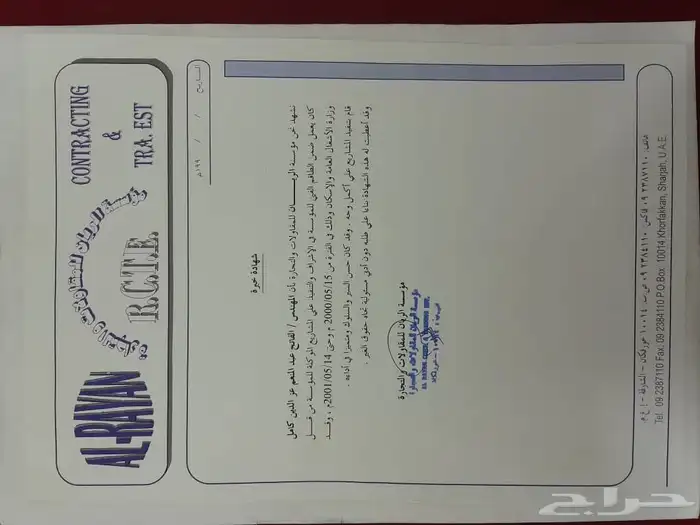 AL-RAYAN
CONTRACTING
&
TRA. EST
مؤسسة الريان للمقاولات والتجارة
R.C.T.E.
التاريخ / / ١٩٩م
شهادة خبرة
نشهد نحن مؤسسة الريان للمقاولات والتجارة بأن المهندس / الفاتح عبد المنعم عز الدين كامل
كان يعمل ضمن الطاقم الفني للمؤسسة في الإشراف والتنفيذ على المشاريع الموكلة للمؤسسة من قبل
وزارة الأشغال العامة والإسكان وذلك في الفترة من 2000/05/15 م وحتى 2001/05/14م ، وقد
قام بتنفيذ المشاريع على أكمل وجه . وقد كان حسن السير والسلوك ومتميزا في أدائه .
وقد أعطيت له هذه الشهادة بناءا على طلبه دون أدنى مسئولية تجاه حقوق الغير .
مؤسسة الريان للمقاولات والتجارة
مؤسسة الريان للمقاولات والتجارة
هاتف: ٢٣٨٧١١٠ ٠٩ فاكس: ٢٣٨٤١١٠ ٠٩ ص.ب: ١٠٠١٤ خورفكان - الشارقة - إ.ع.م
Tel: 09 2387110 Fax: 09 2384110 P.O.Box: 10014 Khorfakkan, Sharjah, U.A.E.
حراج